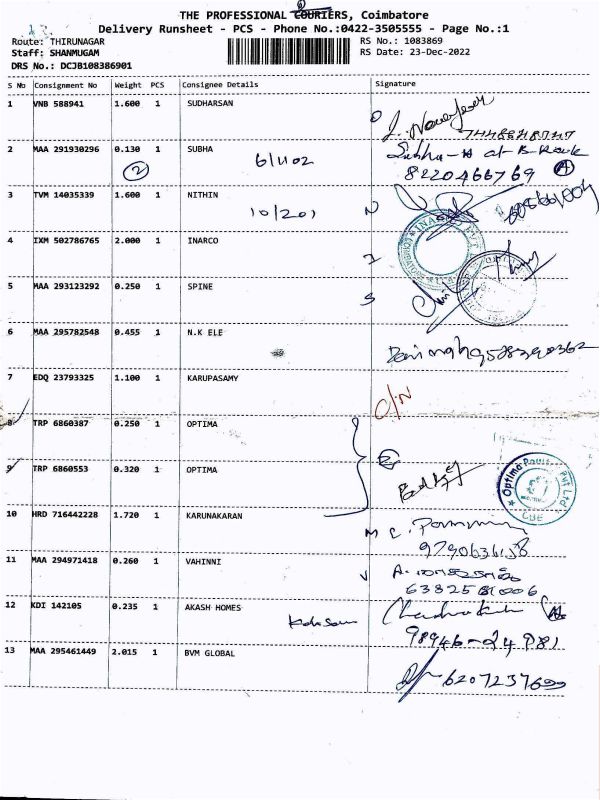 THE PROFESSIONAL COURIERS, Coimbatore
Delivery Runsheet - PCS - Phone No.:0422-3505555 - Page No.:1
Route: THIRUNAGAR RS No.: 1083869
Staff: SHANMUGAM RS Date: 23-Dec-2022
DRS No.: DCJB108386901
S No Consignment No Weight PCS Consignee Details Signature
1 VNB 588941 1.600 1 SUDHARSAN
2 MAA 291930296 0.130 1 SUBHA
2 6/1102 8220466769
3 TVM 14035339 1.600 1 NITHIN
10/201 N
4 IXM 502786765 2.000 1 INARCO
5 MAA 293123292 0.250 1 SPINE S
6 MAA 295782548 0.455 1 N.K ELE
7 EDQ 23793325 1.100 1 KARUPASAMY
O/N
8 TRP 6860387 0.250 1 OPTIMA
9 TRP 6860553 0.320 1 OPTIMA
Optima Pvt Ltd
CBE
10 HRD 716442228 1.720 1 KARUNAKARAN
M
11 MAA 294971418 0.260 1 VAHINNI
V
12 KDI 142105 0.235 1 AKASH HOMES
13 MAA 295461449 2.015 1 BVM GLOBAL